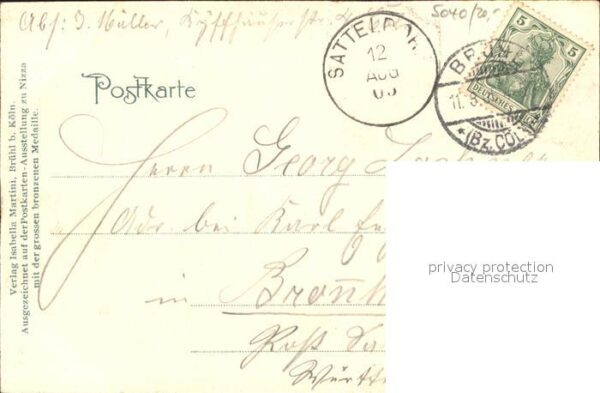 Abs: J. Müller, Kyffhäuserstr.
5040/20,-
SATTELDORF
12
AUG
05
BRÜHL
11. 8.
*(Bz. CÖLN)
5
DEUTSCHES
Postkarte
Verlag Isabella Martini, Brühl b. Köln.
Ausgezeichnet auf der Postkarten-Ausstellung zu Nizza
mit der grossen bronzenen Medaille.
Herrn Georg
Adr. bei Karl
in Bronn
Post Sa
Württ
privacy protection
Datenschutz